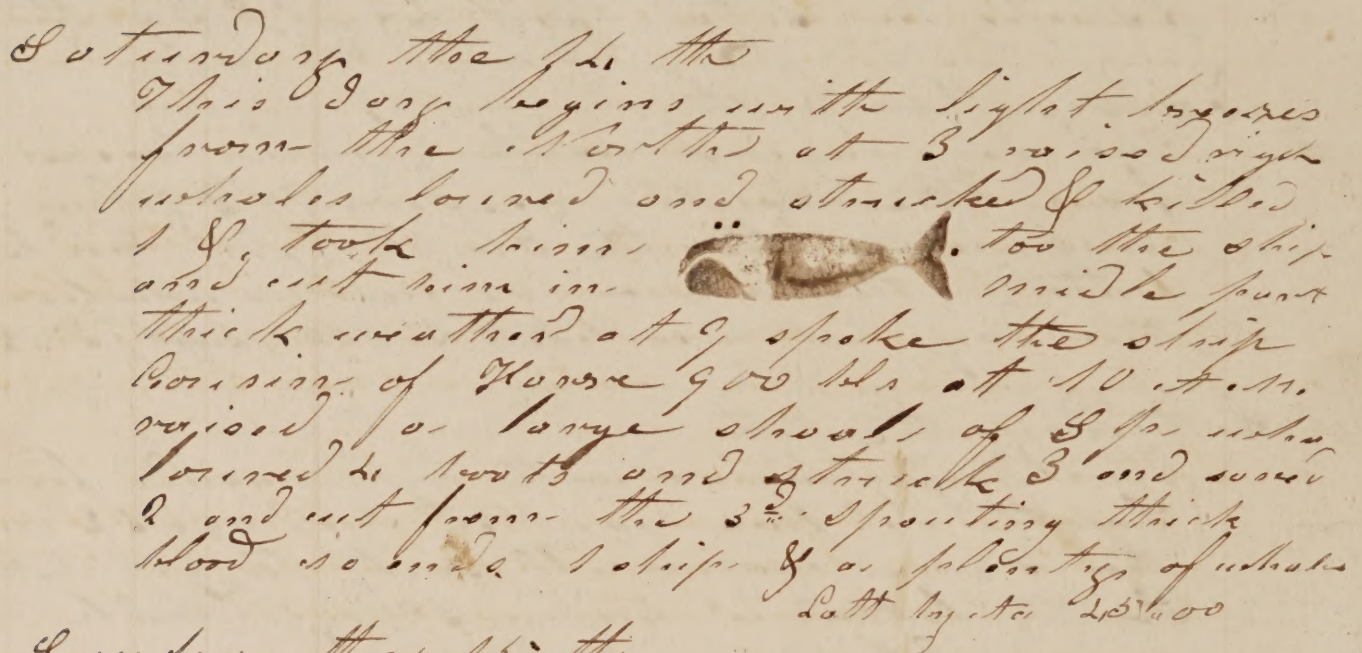 Saturday the 14 th
This day begins with light breezes
from the North at 3 raised right
whales lowred and strucked & killed
1 & took him too the ship
and cut him in midle part
thick weather at 9 spoke the ship
Cousin of Havre 900 bls at 10 A.M.
raised a large shoal of Sp. wha
lowred 4 boats and struck 3 and saved
2 and cut from the 3d spouting thick
blood so ends 1 ship & a plenty of whales
Latt by 45"00
Sunday the th